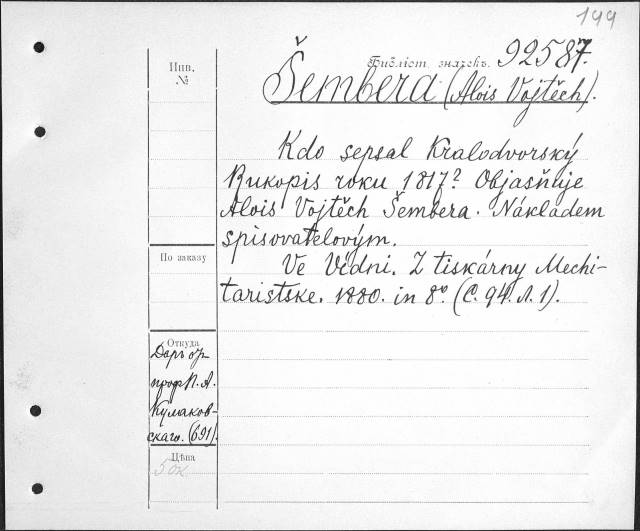 199
Инв.
№
Библіот. значекъ. 92587.
Šembera (Alois Vojtěch).
Kdo sepsal Kralodvorský
Rukopis roku 1817? Objasňuje
Alois Vojtěch Šembera. Nákladem
spisovatelovým.
Ve Vídni. Z tiskárny Mechi-
taristske. 1880. in 8º. (C. 94. Л. 1).
По заказу
Откуда
Даръ отъ
проф П. А.
Кулаков-
скаго. (691).
Цѣна
50к